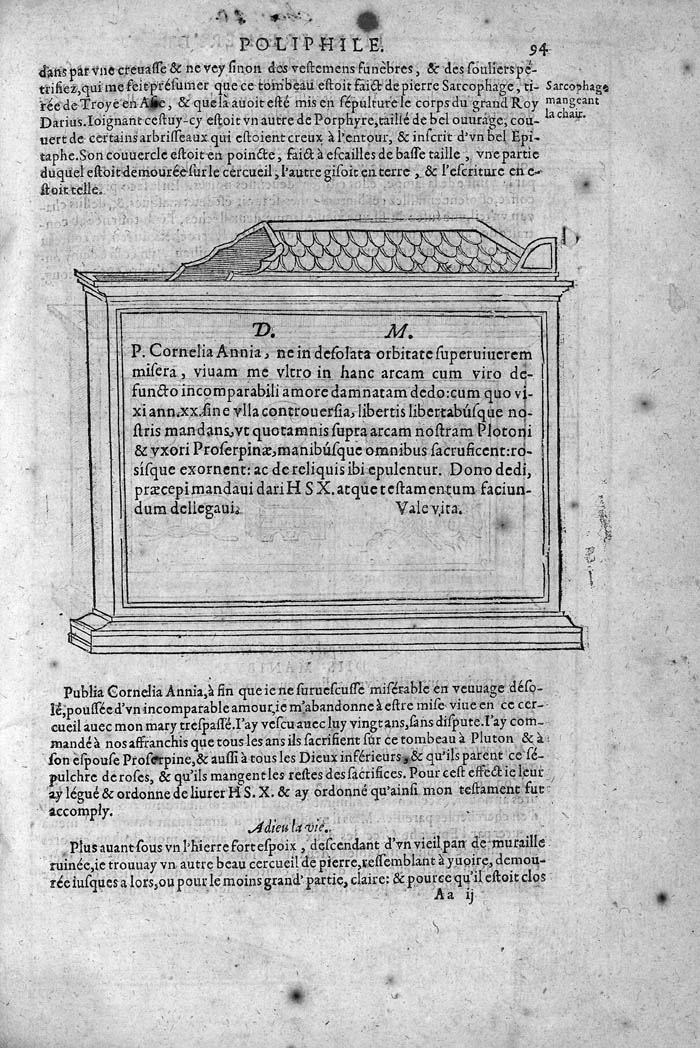 POLIPHILE. 94
dans par vne creuasse & ne vey sinon des vestemens funèbres, & des souliers pé-
trifiez, qui me feit présumer que ce tombeau estoit faict de pierre Sarcophage, ti-
rée de Troye en Asie, & que là auoit esté mis en sépulture le corps du grand Roy
Darius. Ioignant cestuy-cy estoit vn autre de Porphyre, taillé de bel ouurage, cou-
uert de certains arbrisseaux qui estoient creux à l'entour, & inscrit d'vn bel Epi-
taphe. Son couuercle estoit en poincte, faict à escailles de basse taille, vne partie
duquel estoit demourée sur le cercueil, l'autre gisoit en terre, & l'escriture en e-
stoit telle.
Sarcophage
mangeant
la chair.
D. M.
P. Cornelia Annia, ne in desolata orbitate superuiuerem
misera, viuam me vltro in hanc arcam cum viro de-
functo incomparabili amore damnatam dedo: cum quo vi-
xi ann. xx. sine vlla controuersia, libertis libertabúsque no-
stris mandans, vt quotamnis supra arcam nostram Plotoni
& vxori Proserpinæ, manibúsque omnibus sacruficent: ro-
sísque exornent: ac de reliquis ibi epulentur. Dono dedi,
præcepi mandaui dari H S X. atque testamentum faciun-
dum dellegaui. Vale vita.
Publia Cornelia Annia, à fin que ie ne suruescusse misérable en veuuage déso-
lé, poussée d'vn incomparable amour, ie m'abandonne à estre mise viue en ce cer-
cueil auec mon mary trespassé. I'ay vescu auec luy vingt ans, sans dispute. I'ay com-
mandé à nos affranchis que tous les ans ils sacrifient sur ce tombeau à Pluton & à
son espouse Proserpine, & aussi à tous les Dieux inférieurs, & qu'ils parent ce sé-
pulchre de roses, & qu'ils mangent les restes des sacrifices. Pour cest effect ie leur
ay légué & ordonne de liurer H S. X. & ay ordonné qu'ainsi mon testament fut
accomply.
Adieu la vie.
Plus auant sous vn l'hierre fort espoix, descendant d'vn vieil pan de muraille
ruinée, ie trouuay vn autre beau cercueil de pierre, ressemblant à yuoire, demou-
rée iusques a lors, ou pour le moins grand' partie, claire: & pource qu'il estoit clos
Aa ij